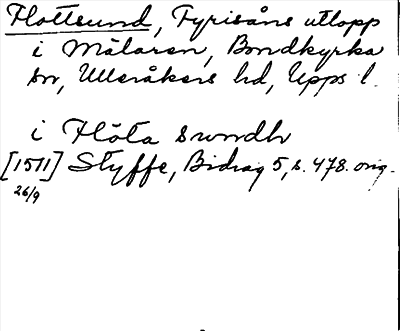 Flottsund, Fyrisåns utlopp
i Mälaren, Bondkyrka
sn, Ulleråkers hd, Upps l.
i Flöta swndh
[1511] Styffe, Bidrag 5, s. 478. orig.
26/9